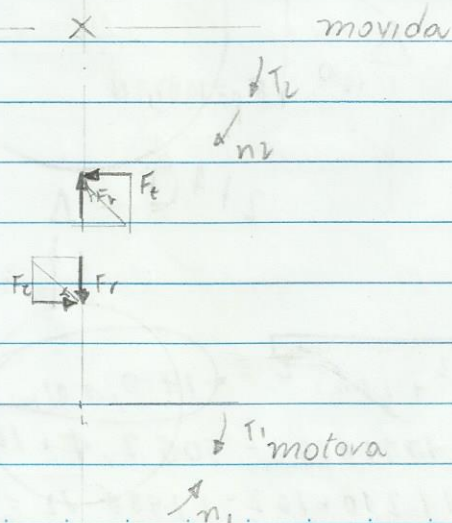 movida
T2
n2
Fr Ft
Ft Fr
T1 motora
n1